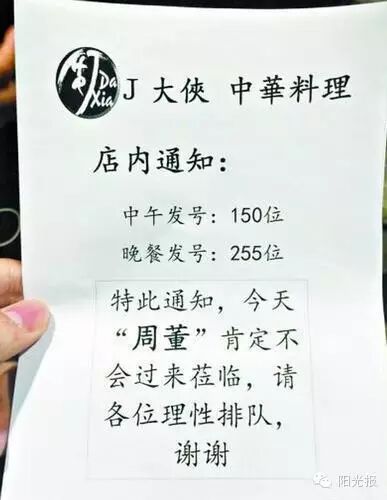 Da
Xia
J 大俠 中華料理
店内通知：
中午发号：150位
晚餐发号：255位
特此通知，今天
“周董”肯定不
会过来莅临，请
各位理性排队，
谢谢
阳光报